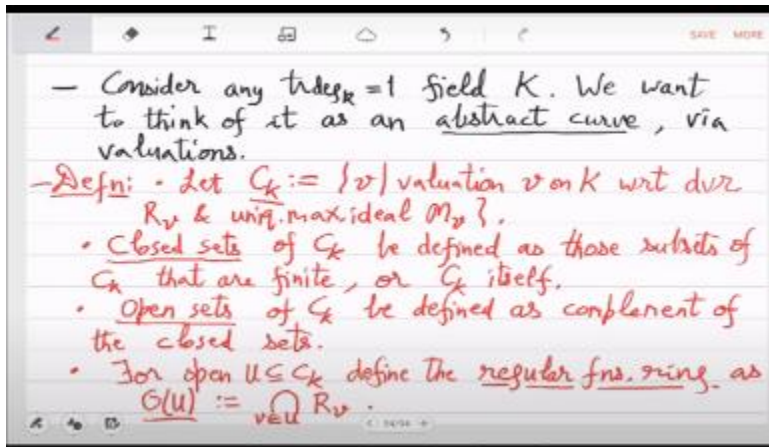 SAVE MORE
— Consider any trdeg_k = 1 field K. We want
to think of it as an abstract curve, via
valuations.
- Defn: • Let C_K := {v | valuation v on K wrt dvr
R_v & uniq. max. ideal m_v}.
• Closed sets of C_K be defined as those subsets of
C_K that are finite, or C_K itself.
• Open sets of C_K be defined as complement of
the closed sets.
• For open U ⊆ C_K define the regular fns. ring as
O(U) := ∩_{v∈U} R_v.